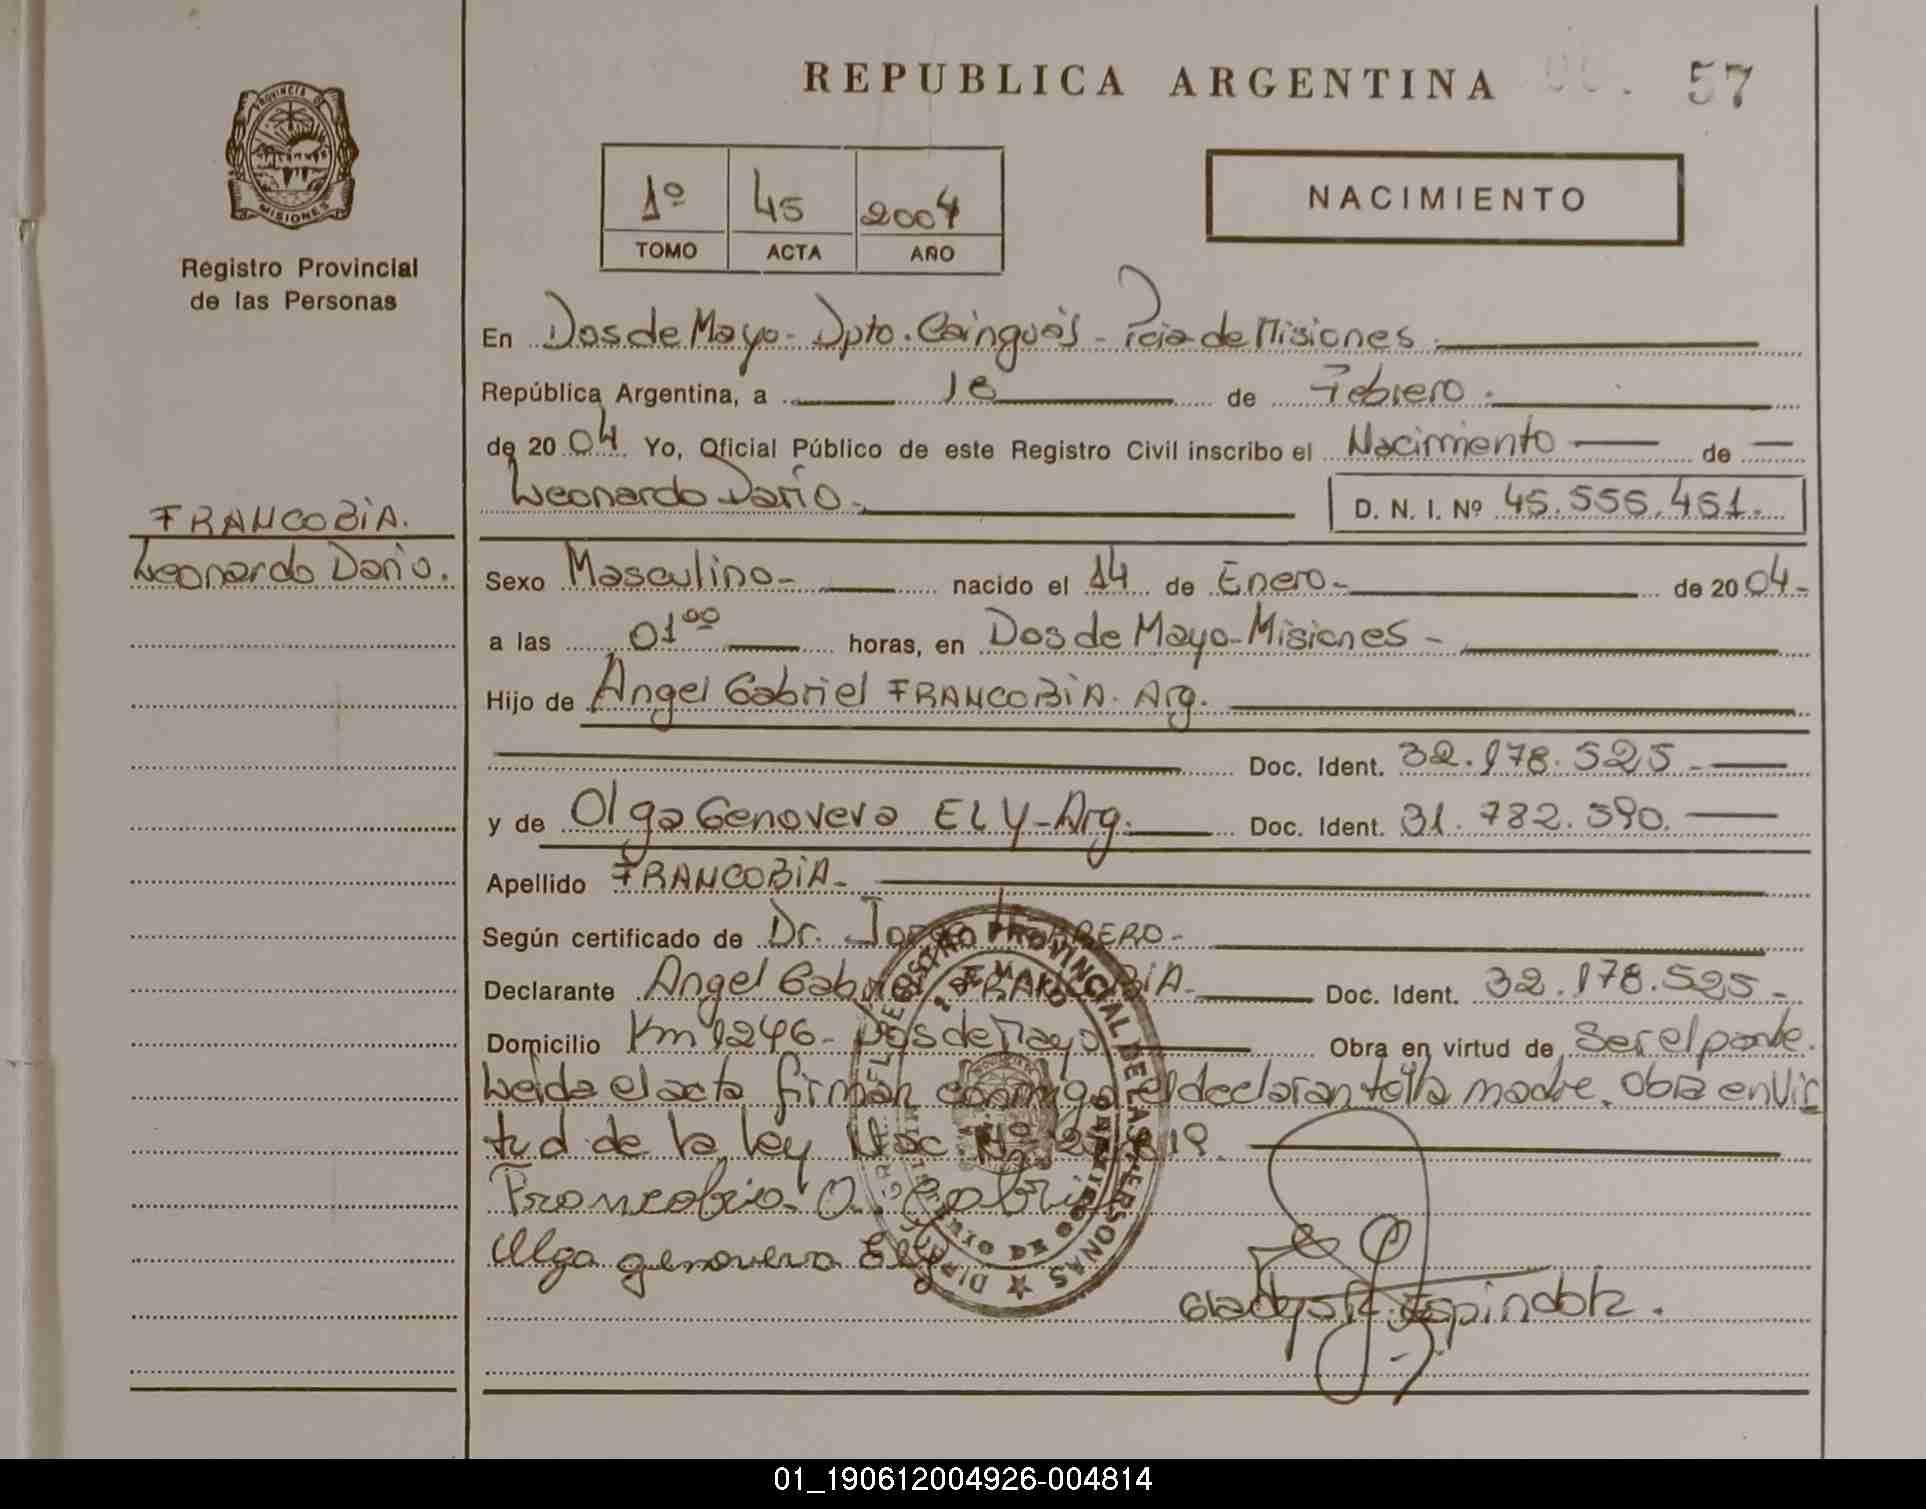 REPUBLICA ARGENTINA
57
PROVINCIA DE
MISIONES
Registro Provincial
de las Personas
1º 45 2004
TOMO ACTA AÑO
NACIMIENTO
En Dos de Mayo - Dpto. Cainguás - Pcia de Misiones
República Argentina, a 18 de Febrero.
de 2004. Yo, Oficial Público de este Registro Civil inscribo el Nacimiento de
Leonardo Dario. D. N. I. Nº 45.555.451.
FRANCOBIA.
Leonardo Dario.
Sexo Masculino - nacido el 14 de Enero - de 2004-
a las 01⁰⁰ horas, en Dos de Mayo - Misiones -
Hijo de Angel Gabriel FRANCOBIA. Arg.
Doc. Ident. 32.178.525 -
y de Olga Genoveva ELY - Arg. Doc. Ident. 31.782.590.
Apellido FRANCOBIA -
Según certificado de Dr.
Declarante Angel Gabriel FRANCOBIA - Doc. Ident. 32.178.525 -
Domicilio Km 1246 - Dos de Mayo Obra en virtud de Ser el padre.
Leida el acta firman conmigo el declarante y la madre. Obra en Vir
tud de la ley Nac. Nº
Francobia. O. Gabriel
Olga genoveva Ely
REGISTRO PROVINCIAL DE LAS PERSONAS
Espindola.
01_190612004926-004814